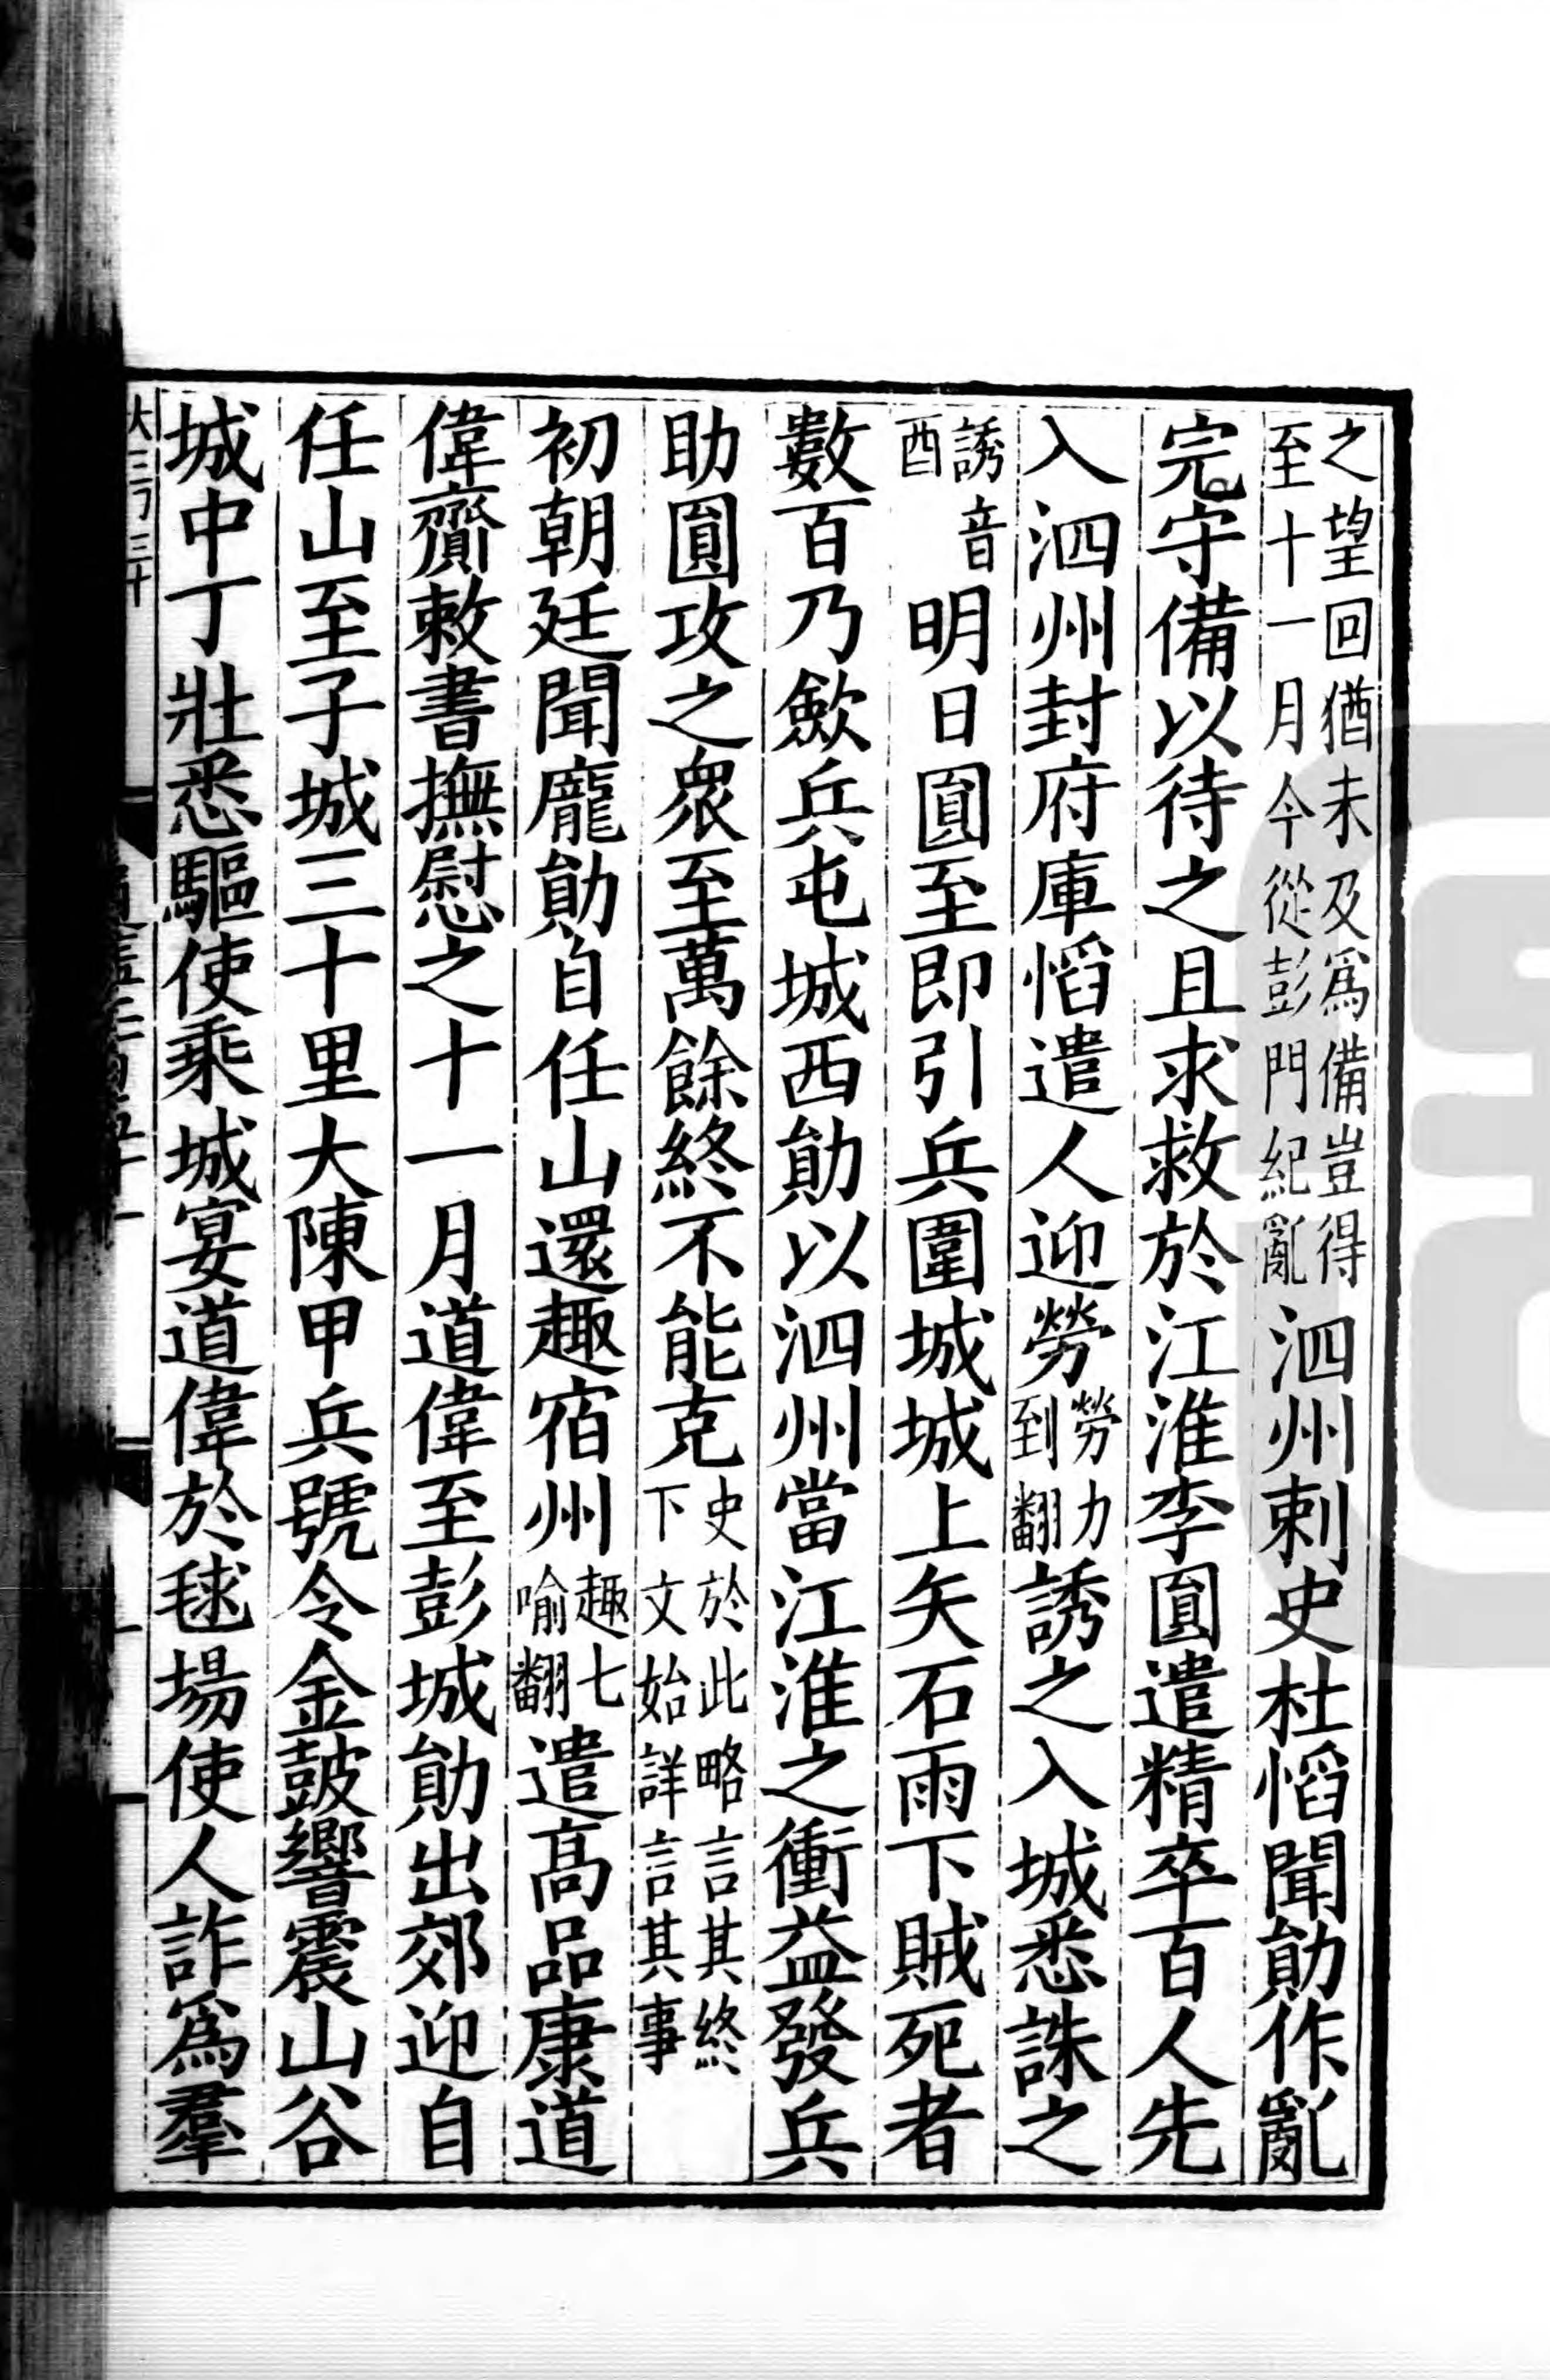 之望回猶未及爲備豈得
至十一月今從彭門紀亂
泗州刺史杜慆聞勛作亂
完守備以待之且求救於江淮李圓遣精卒百人先
入泗州封府庫慆遣人迎勞勞力到翻誘之入城悉誅之
誘音酉明日圓至即引兵圍城城上矢石雨下賊死者
數百乃歛兵屯城西勛以泗州當江淮之衝益發兵
助圓攻之衆至萬餘終不能克史於此略言其終下文始詳言其事
初朝廷聞龐勛自任山還趣宿州趣七喻翻遣高品康道
偉齎敕書撫慰之十一月道偉至彭城勛出郊迎自
任山至子城三十里大陳甲兵號令金鼓響震山谷
城中丁壯悉驅使乘城宴道偉於毬場使人詐爲羣